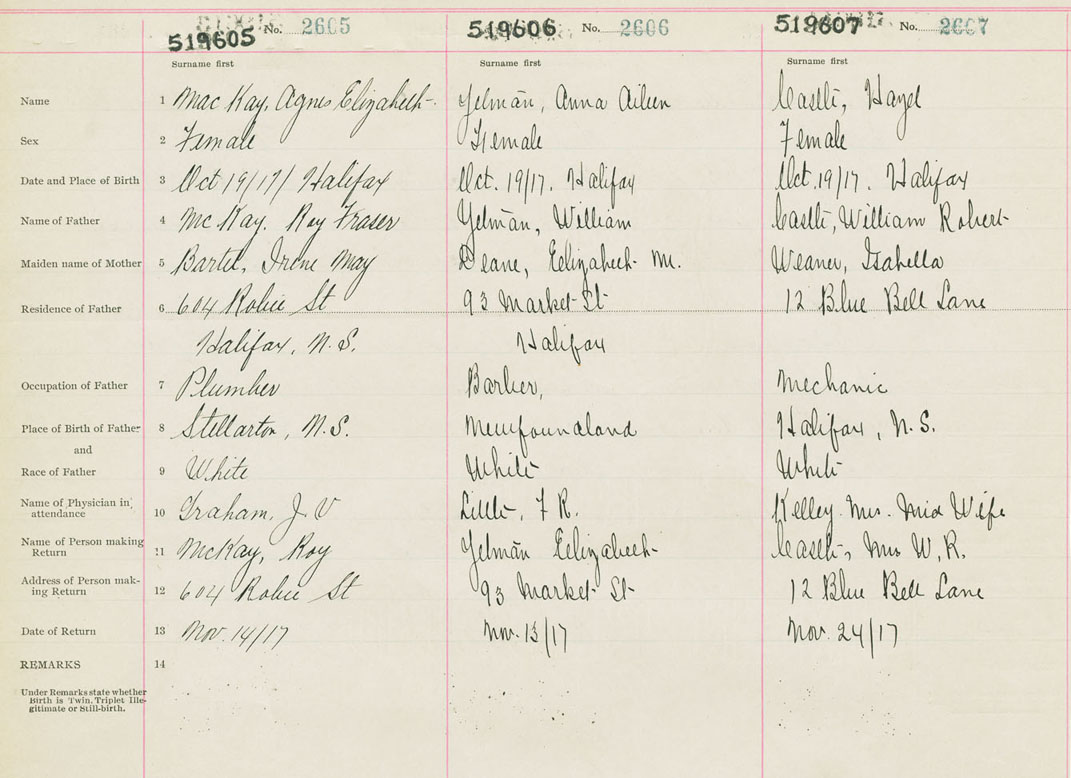 519605 No. 2605 519606 No. 2606 519607 No. 2607
Surname first Surname first Surname first
Name 1 Mac Kay, Agnes Elizabeth Yelman, Anna Aileen Castle, Hazel
Sex 2 Female Female Female
Date and Place of Birth 3 Oct 19/17/ Halifax Oct. 19/17. Halifax Oct. 19/17. Halifax
Name of Father 4 McKay. Roy Fraser Yelman, William Castle, William Robert
Maiden name of Mother 5 Irene May Deane, Elizabeth M. Weaner, Isabella
Residence of Father 6 604 Robie St 93 Market St 12 Blue Bell Lane
Halifax, N.S. Halifax
Occupation of Father 7 Plumber Barber, Mechanic
Place of Birth of Father 8 Stellarton, N.S. Newfoundland Halifax, N.S.
and
Race of Father 9 White White White
Name of Physician in
attendance 10 Graham, J.V Little, F R. Kelley Mrs. Mid Wife
Name of Person making
Return 11 McKay, Roy Yelman Elizabeth Castle, Mrs W.R.
Address of Person mak-
ing Return 12 604 Robie St 93 Market St 12 Blue Bell Lane
Date of Return 13 Nov. 14/17 Nov. 13/17 Nov. 24/17
REMARKS 14
Under Remarks state whether
Birth is Twin, Triplet Ille-
gitimate or Still-birth.